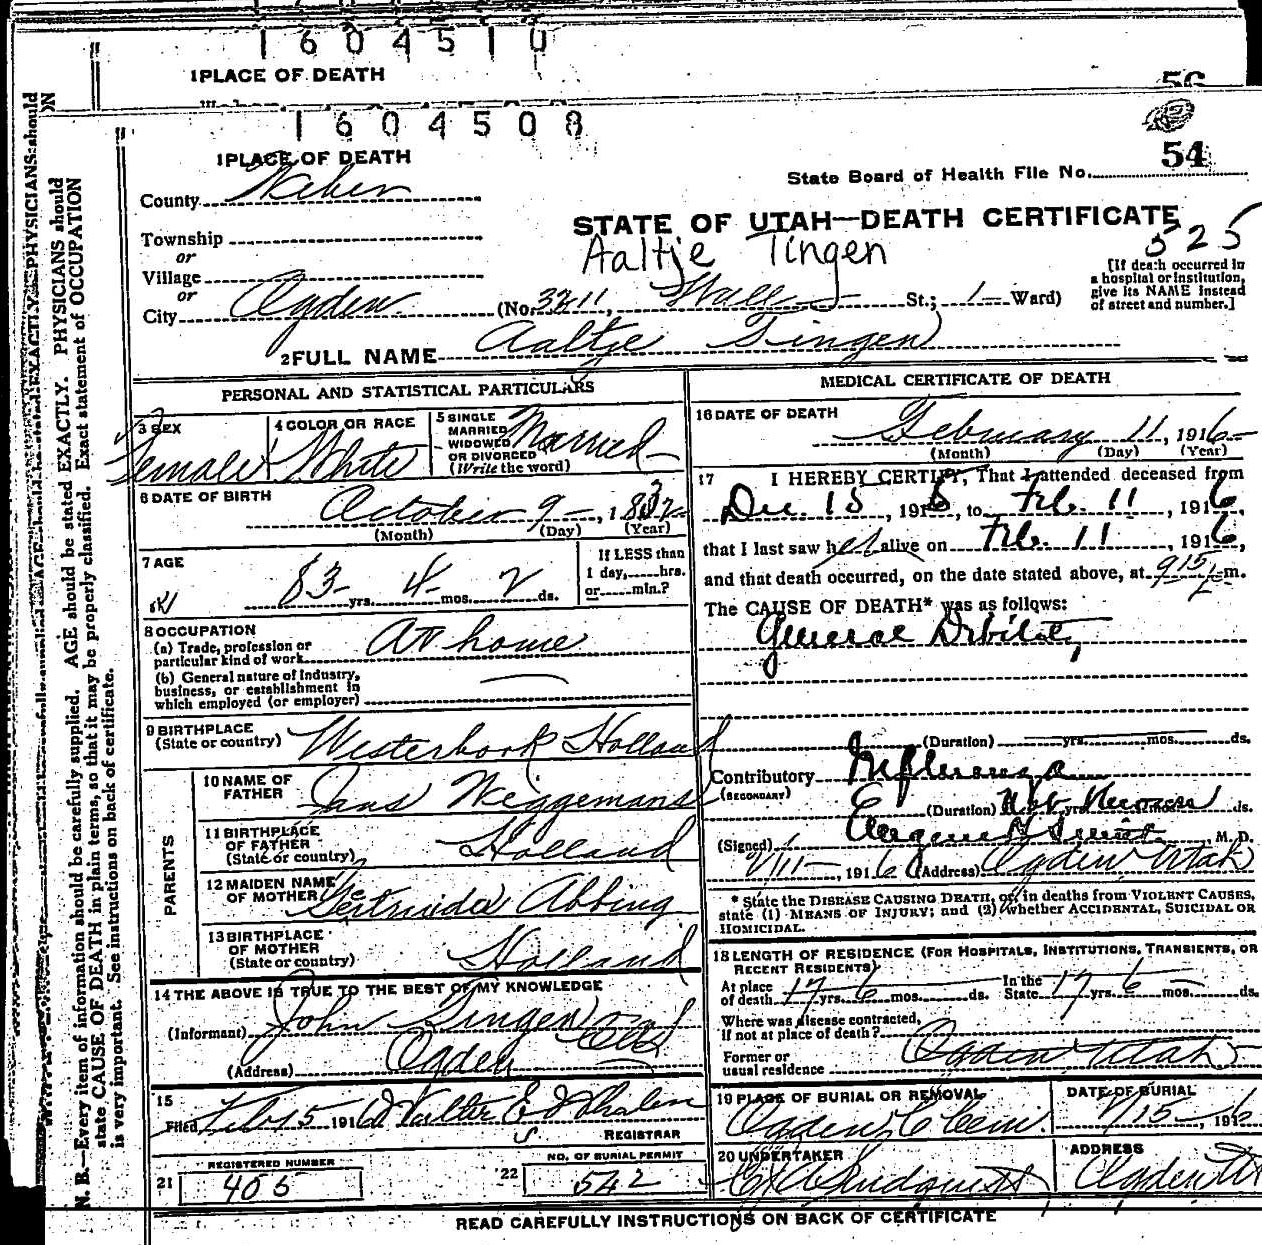 1604510
1 PLACE OF DEATH
56
1604508
1 PLACE OF DEATH
54
State Board of Health File No.
County Weber
STATE OF UTAH—DEATH CERTIFICATE
Township
Aaltje Tingen
525
or
Village
or
City Ogden (No. 3211, Wall St.; 1 Ward)
[If death occurred in
a hospital or institution,
give its NAME instead
of street and number.]
2 FULL NAME Aaltje Tingen
PERSONAL AND STATISTICAL PARTICULARS
3 SEX
Female
4 COLOR OR RACE
White
5 SINGLE
MARRIED
WIDOWED
OR DIVORCED
(Write the word)
Married
6 DATE OF BIRTH
October 9, 1832
(Month) (Day) (Year)
7 AGE
83 yrs. 4 mos. 2 ds.
If LESS than
1 day, hrs.
or min.?
8 OCCUPATION
(a) Trade, profession or
particular kind of work At home
(b) General nature of Industry,
business, or establishment in
which employed (or employer)
9 BIRTHPLACE
(State or country) Westerbork Holland
PARENTS
10 NAME OF
FATHER Jans Wiggemans
11 BIRTHPLACE
OF FATHER
(State or country) Holland
12 MAIDEN NAME
OF MOTHER Gertruida Abbing
13 BIRTHPLACE
OF MOTHER
(State or country) Holland
14 THE ABOVE IS TRUE TO THE BEST OF MY KNOWLEDGE
(Informant) John Tingen
(Address) Ogden
15
Filed Feb 15 1916 Walter E Whalen
REGISTRAR
REGISTERED NUMBER
21 405
NO. OF BURIAL PERMIT
22 542
MEDICAL CERTIFICATE OF DEATH
16 DATE OF DEATH
February 11, 1916
(Month) (Day) (Year)
17 I HEREBY CERTIFY, That I attended deceased from
Dec. 15, 1915, to Feb. 11, 1916,
that I last saw her alive on Feb. 11, 1916,
and that death occurred, on the date stated above, at 915 m.
The CAUSE OF DEATH* was as follows:
General Debility
(Duration) yrs. mos. ds.
Contributory Influenza
(SECONDARY)
(Duration) yrs. mos. ds.
(Signed) M. D.
11, 1916 (Address) Ogden Utah
* State the DISEASE CAUSING DEATH, or, in deaths from VIOLENT CAUSES,
state (1) MEANS OF INJURY; and (2) whether ACCIDENTAL, SUICIDAL OR
HOMICIDAL.
18 LENGTH OF RESIDENCE (FOR HOSPITALS, INSTITUTIONS, TRANSIENTS, OR
RECENT RESIDENTS)
At place
of death 17 yrs. 6 mos. ds.
In the
State 17 yrs. 6 mos. ds.
Where was disease contracted,
if not at place of death?
Former or
usual residence Ogden Utah
19 PLACE OF BURIAL OR REMOVAL
Ogden Cem.
DATE OF BURIAL
15, 1916
20 UNDERTAKER
ADDRESS
Ogden Ut
READ CAREFULLY INSTRUCTIONS ON BACK OF CERTIFICATE
N. B.—Every item of information should be carefully supplied. AGE should be stated EXACTLY. PHYSICIANS should
state CAUSE OF DEATH in plain terms, so that it may be properly classified. Exact statement of OCCUPATION
is very important. See instructions on back of certificate.